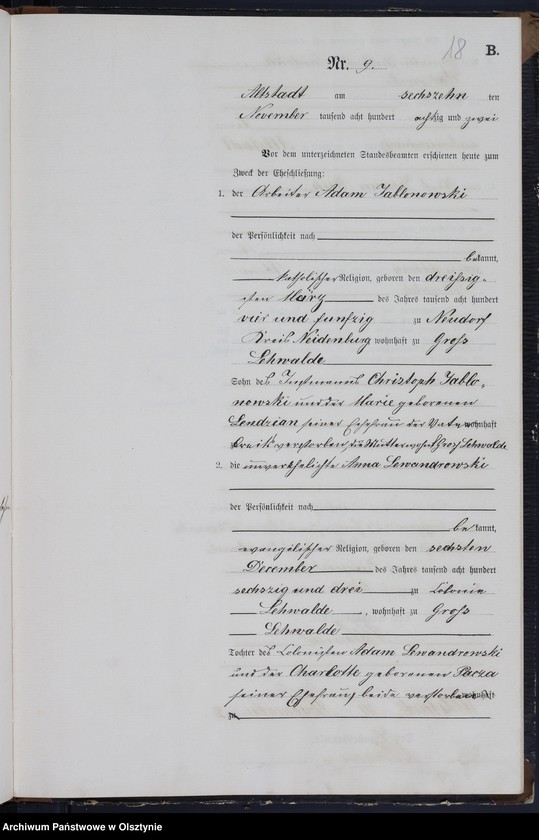 18
B.
Nr. 9.
Altstadt am sechszehn ten
November tausend acht hundert achtzig und zwei
Vor dem unterzeichneten Standesbeamten erschienen heute zum
Zweck der Eheschließung:
1. der Arbeiter Adam Jablonowski
der Persönlichkeit nach
bekannt,
katholischer Religion, geboren den dreißig-
sten März des Jahres tausend acht hundert
vier und funfzig zu Neudorf
Kreis Neidenburg wohnhaft zu Gross
Lehwalde
Sohn des Instmanns Christoph Jablo-
nowski und der Marie geborenen
Lendzian seiner Ehefrau der Vater wohnhaft
verstorben, die Mutter Gross Lehwalde
2. die unverehelichte Anna Lewandrowski
der Persönlichkeit nach
bekannt,
evangelischer Religion, geboren den sechsten
December des Jahres tausend acht hundert
sechszig und drei zu Colonie
Lehwalde, wohnhaft zu Gross
Lehwalde
Tochter des Colonisten Adam Lewandrowski
und der Charlotte geborenen Pacza
seiner Ehefrau, beide verstorben wohnhaft
zu
Archiwum Państwowe w Olsztynie